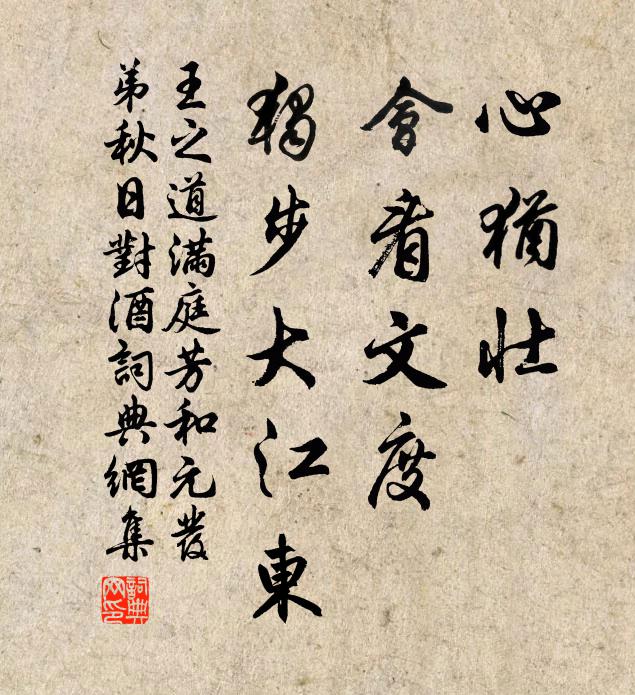 心猶壯
會看文度
獨步大江東
王之道滿庭芳和元發
弟秋日對酒詞典網集
詞典網印